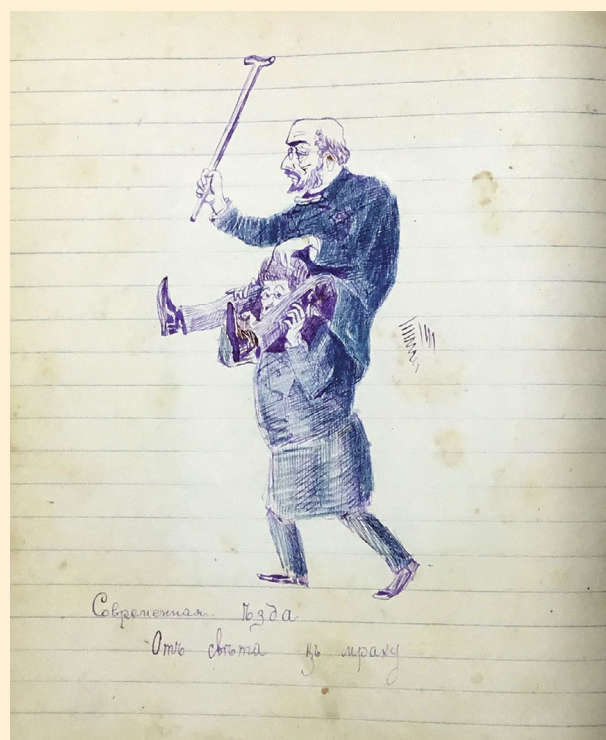 Современная ѣзда
Отъ свѣта къ мраку